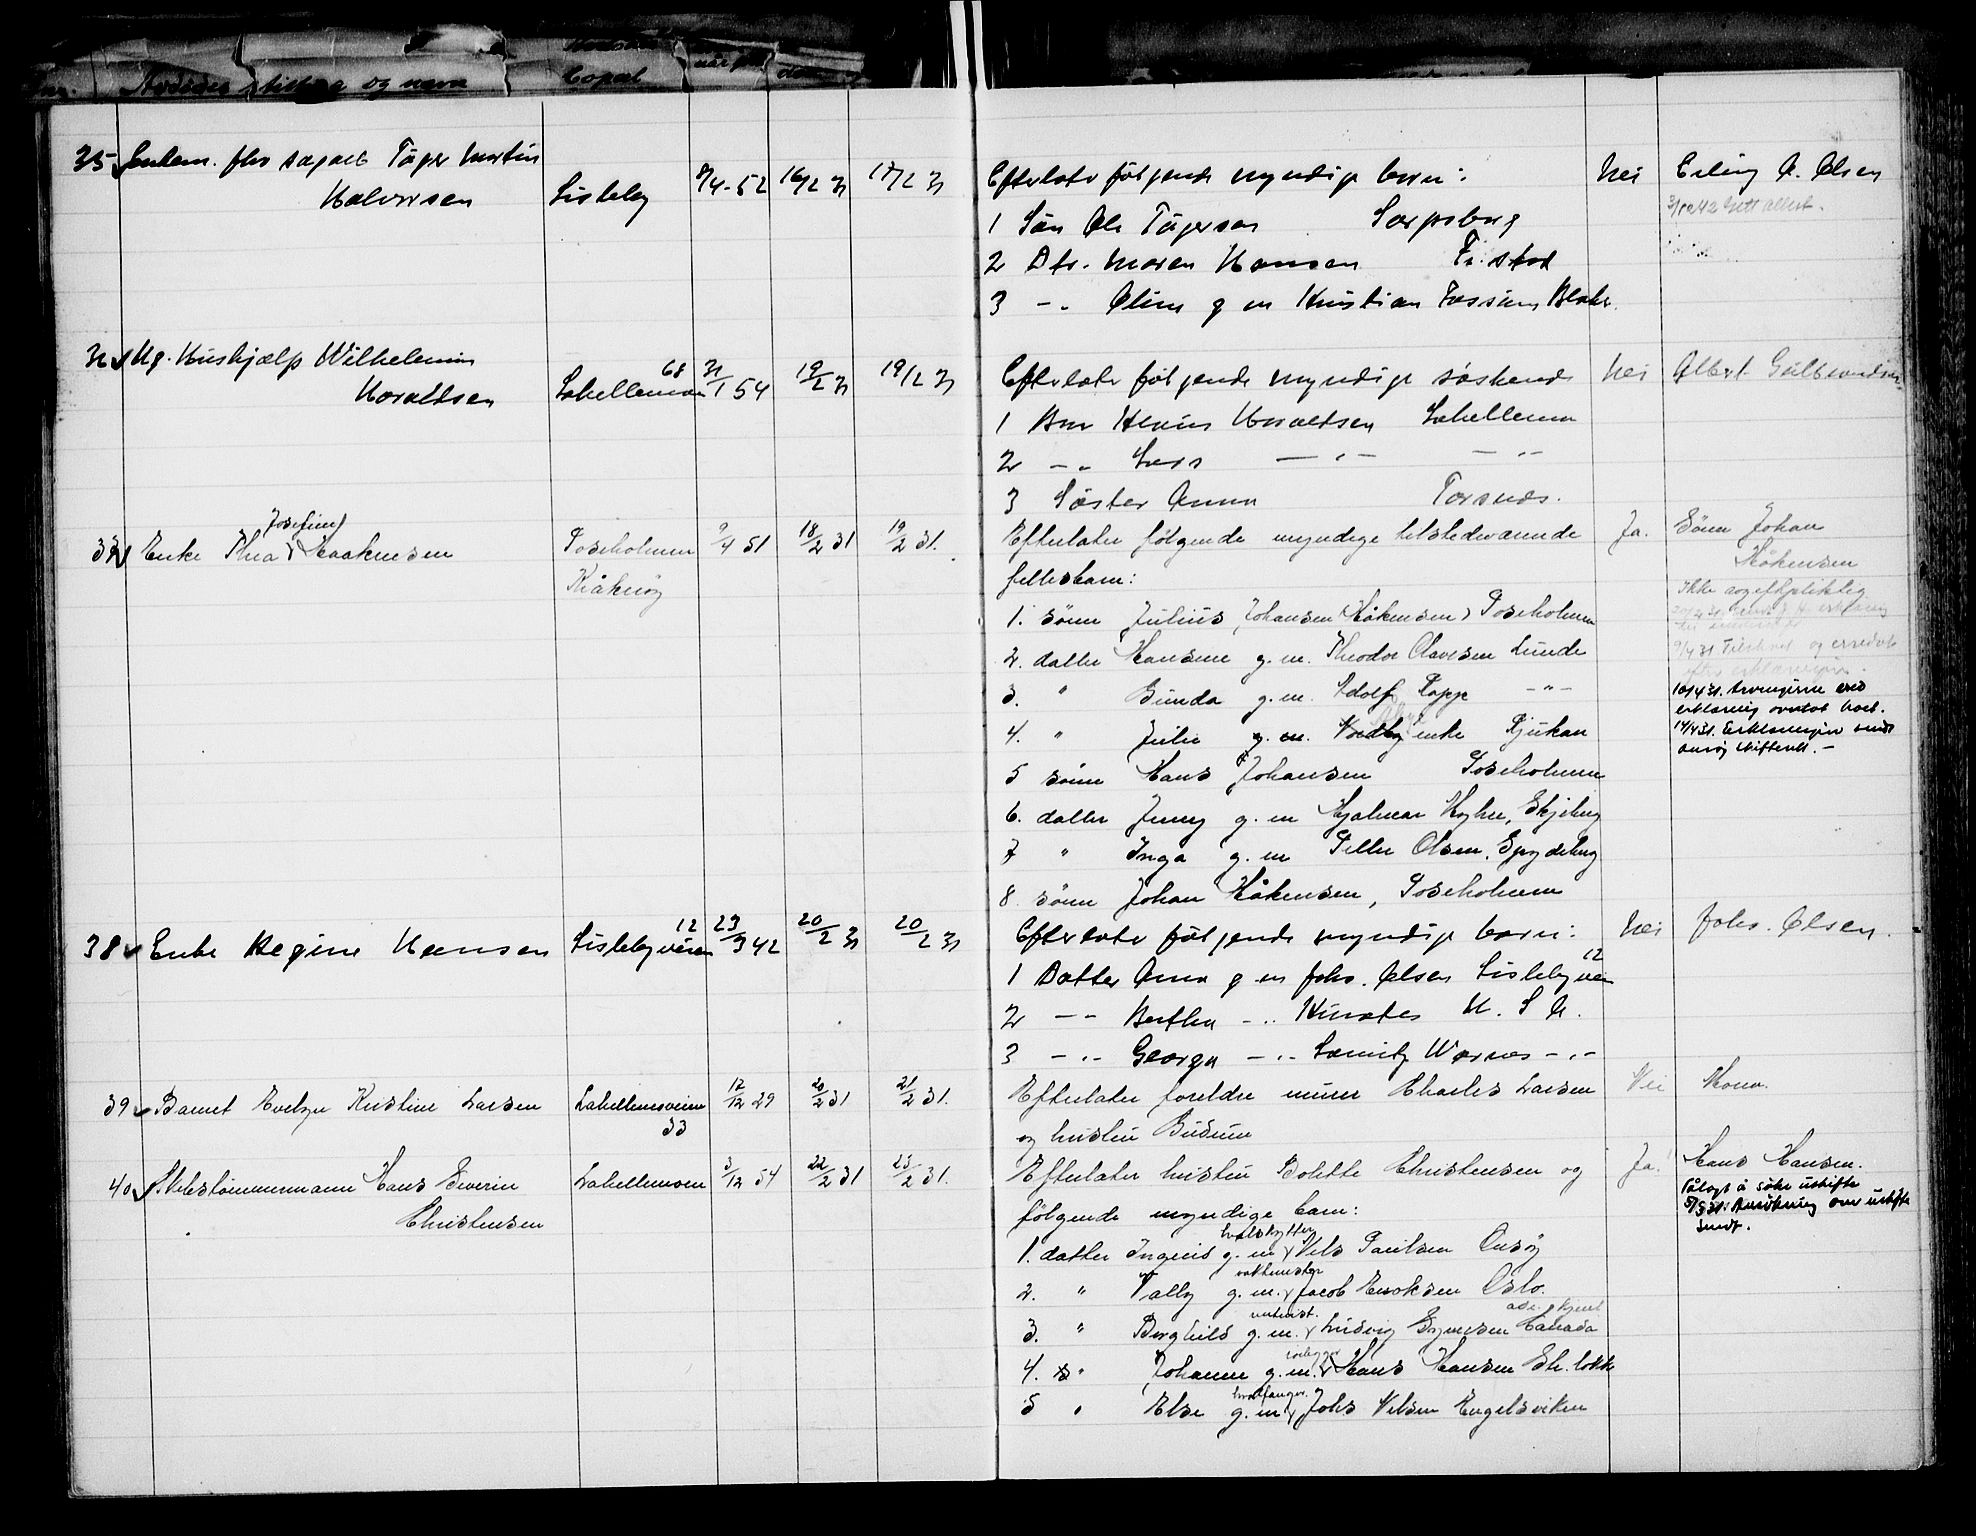 Avdødes stilling og navn
Bopæl
35 Enkem. fhv sagarb Tåger Martin
Halvorsen
Lisleby
7/4-52 16/2 31 17/2 31
Efterlater følgende myndige barn:
1 Søn Ole Tågersen Sarpsborg
2 Dtr. Maren Hansen Fr.stad
3 -,, Oline g m Kristian Fossum Blaker.
Nei
Erling A. Olsen
36 Ug. Hushjælp Wilhelmine
Haraldsen
Labellemoen 68
31/1 54 19/2 31 19/2 31
Efterlater følgende myndige søskende
1 Bror Haraldsen Labellemoen
2 -,, Lars -,,- -,,-
3 Søster Anna Torsnæs.
Nei
Albert Gulbrandsen
37 Enke Thea Josefine Haakensen
Roseholmen
Kråkerøy
9/4 51 18/2 31 19/2 31.
Efterlater følgende myndige tilstedeværende
fellesbarn:
1. sønn Julius Johansen (Håkensen) Roseholmen
2. datter Hansine g.m. Theodor Olavesen Lunde
3. " Gunda g.m. Adolf Papp -"-
4. " Julie g.m. enke Rjukan
5 sønn Hans Johansen Roseholmen
6. datter Jenny g.m Hjalmar Skjeberg
7 " Inga g.m Petter Olsen, Spydeberg
8. sønn Johan Håkensen, Roseholmen
Ja.
Sønn Johan
Håkensen
Ikke avgiftspliktig
10/4 31. Arvingerne med
erklæring overtat boet.
14/4 31. Erklæringen sendt
Onsøy skifterett. -
38 Enke Regine Hansen
Lislebyveien 12
23/9 42 20/2 31 20/2 31
Efterlater følgende myndige barn:
1 Datter Anna g m Johs. Olsen Lislebyveien 12
2 -- Bertha -,, U. S. A.
3 -,,- Georga -,,- Warnes -,,-
Nei
Johs. Olsen.
39 Barnet Evelyn Kristine Larsen
Labellemoveien
33
12/12 29 20/2 31 21/2 31.
Efterlater foreldre murer Charles Larsen
og hustru Gudrun
Nei
Moren.
40 Skibstømmermann Hans Severin
Christensen
Labellemoen
3/12 54 22/2 31 23/2 31.
Efterlater hustru Bolette Christensen og
følgende myndige barn:
1. datter Ingrid g.m hvalskytter Nils Paulsen Onsøy
2. " Vally g.m. vaktmester Jacob Eriksen Oslo.
3. " Borghild g.m. Ludvig Syversen Canada
4. " Johanne g.m. Hans Hansen
5 " Else g.m. hvalfanger Johs Nilsen Engelsviken
Ja.
Hans Hansen.
Pålagt å søke uskifte
5/3 31. Ansøkning om uskifte
sendt.